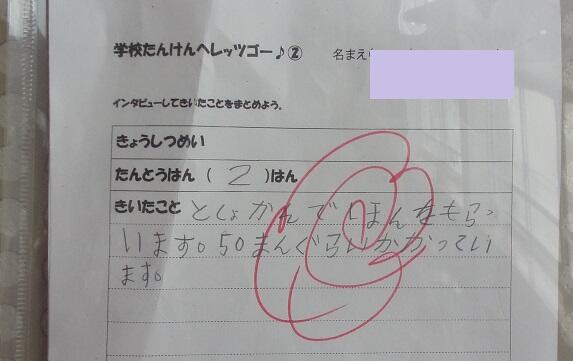 学校たんけんへレッツゴー♪②
名まえ
インタビューしてきいたことをまとめよう。
きょうしつめい
たんとうはん（ 2 ）はん
きいたこと としょかんでほんをもらっ
います。50まんぐらいかかってい
ます。